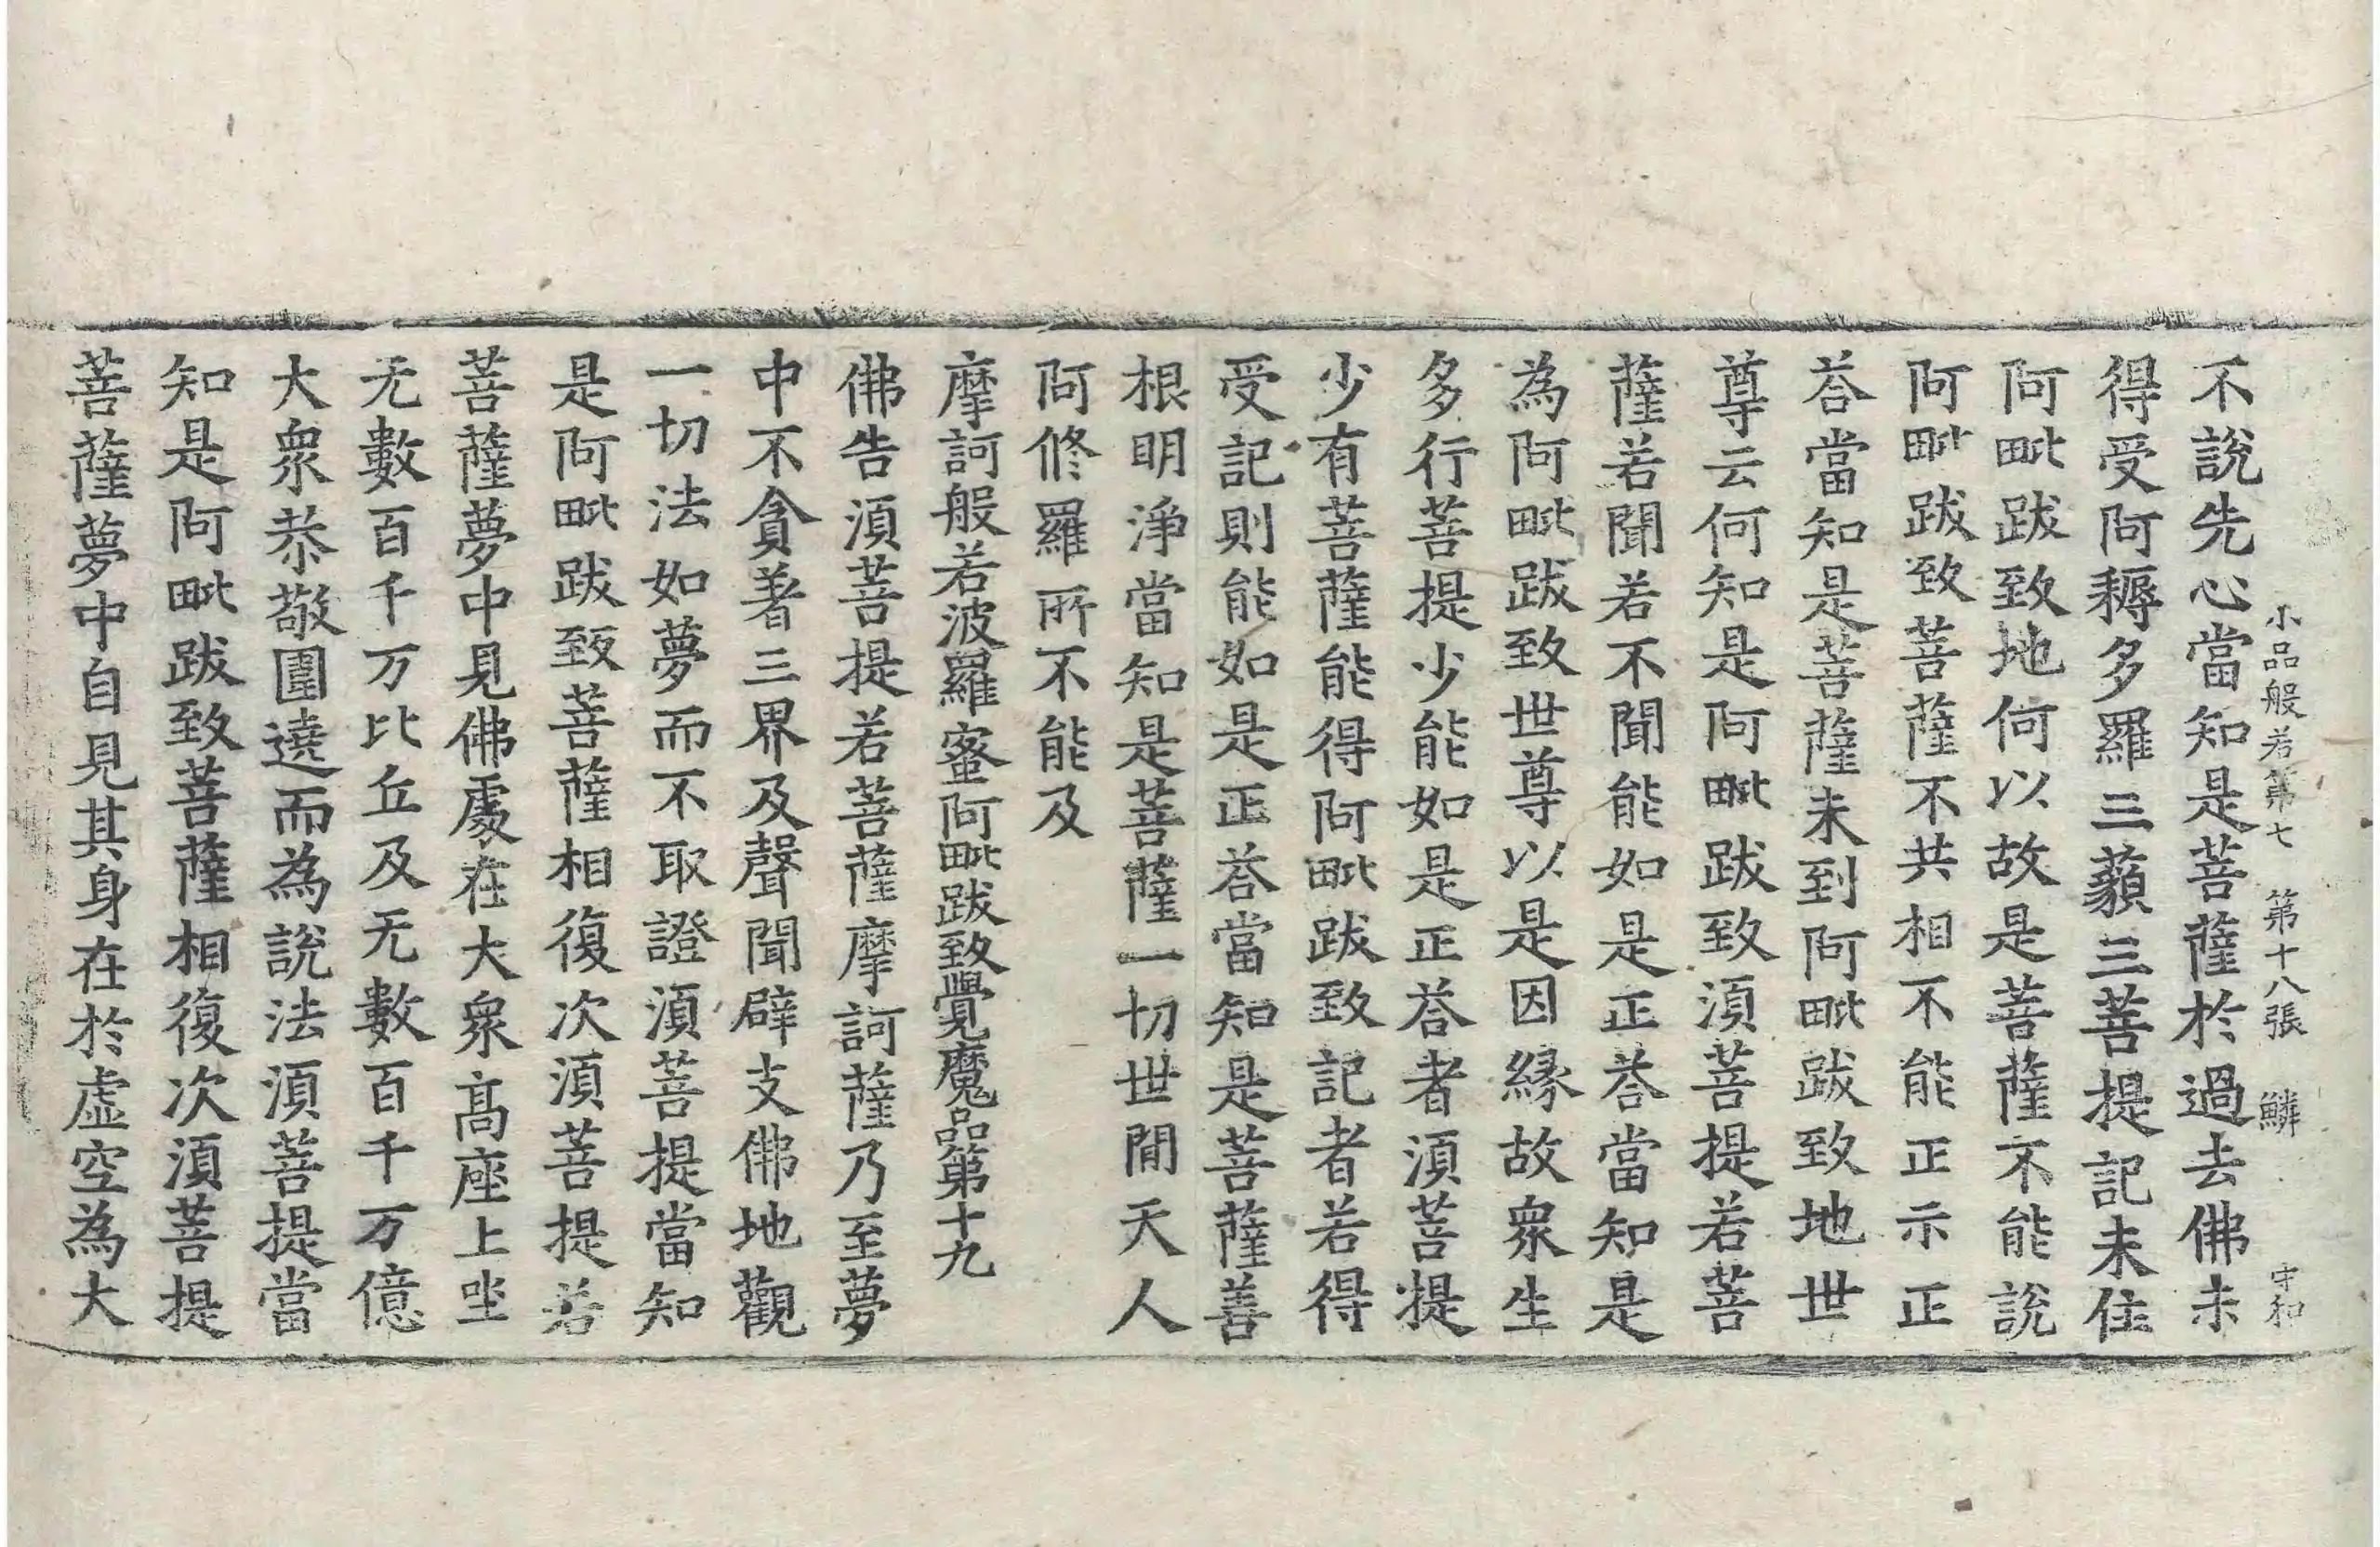 小品般若第七 第十八張 鱗 守和
不說先心當知是菩薩於過去佛未
得受阿耨多羅三藐三菩提記未住
阿毗跋致地何以故是菩薩不能說
阿毗跋致菩薩不共相不能正示正
荅當知是菩薩未到阿毗跋致地世
尊云何知是阿毗跋致須菩提若菩
薩若聞若不聞能如是正荅當知是
為阿毗跋致世尊以是因緣故衆生
多行菩提少能如是正荅者須菩提
少有菩薩能得阿毗跋致記者若得
受記則能如是正荅當知是菩薩善
根明淨當知是菩薩一切世間天人
阿修羅所不能及
摩訶般若波羅蜜阿毗跋致覺魔品第十九
佛告須菩提若菩薩摩訶薩乃至夢
中不貪著三界及聲聞辟支佛地觀
一切法如夢而不取證須菩提當知
是阿毗跋致菩薩相復次須菩提若
菩薩夢中見佛處在大衆高座上坐
无數百千万比丘及无數百千万億
大衆恭敬圍遶而為說法須菩提當
知是阿毗跋致菩薩相復次須菩提
菩薩夢中自見其身在於虛空為大